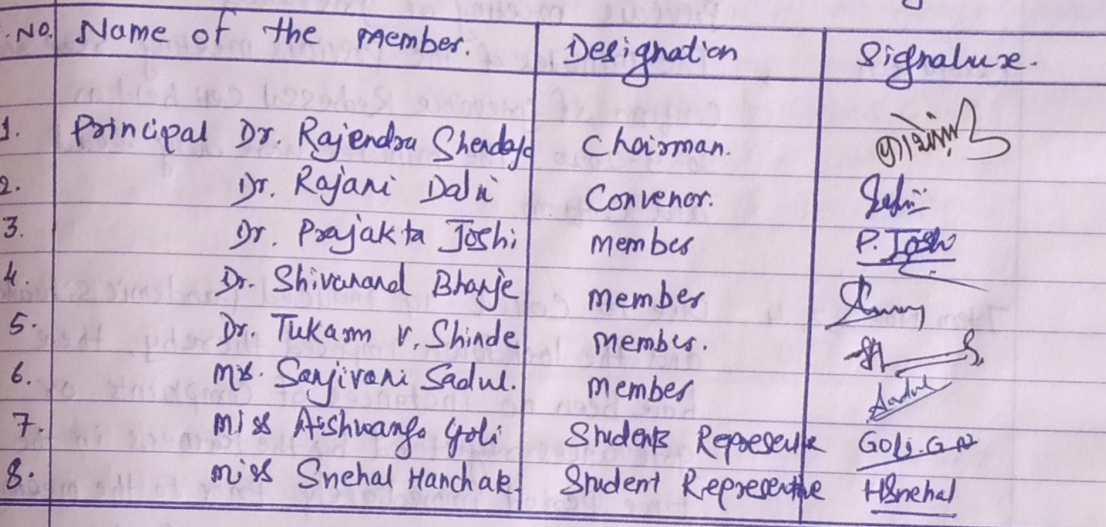 No. Name of the member. Designation Signature.
1. Principal Dr. Rajendra Shendage Chairman.
2. Dr. Rajani Dalvi Convenor.
3. Dr. Prajakta Joshi member P. Joshi
4. Dr. Shivanand Bhanje member
5. Dr. Tukaram V. Shinde member.
6. Mrs. Sanjivani Sadul. member Sadul
7. Miss Aishwarya Goli Students Represente Goli. G. A
8. Miss Snehal Hanchate Student Representive HSnehal